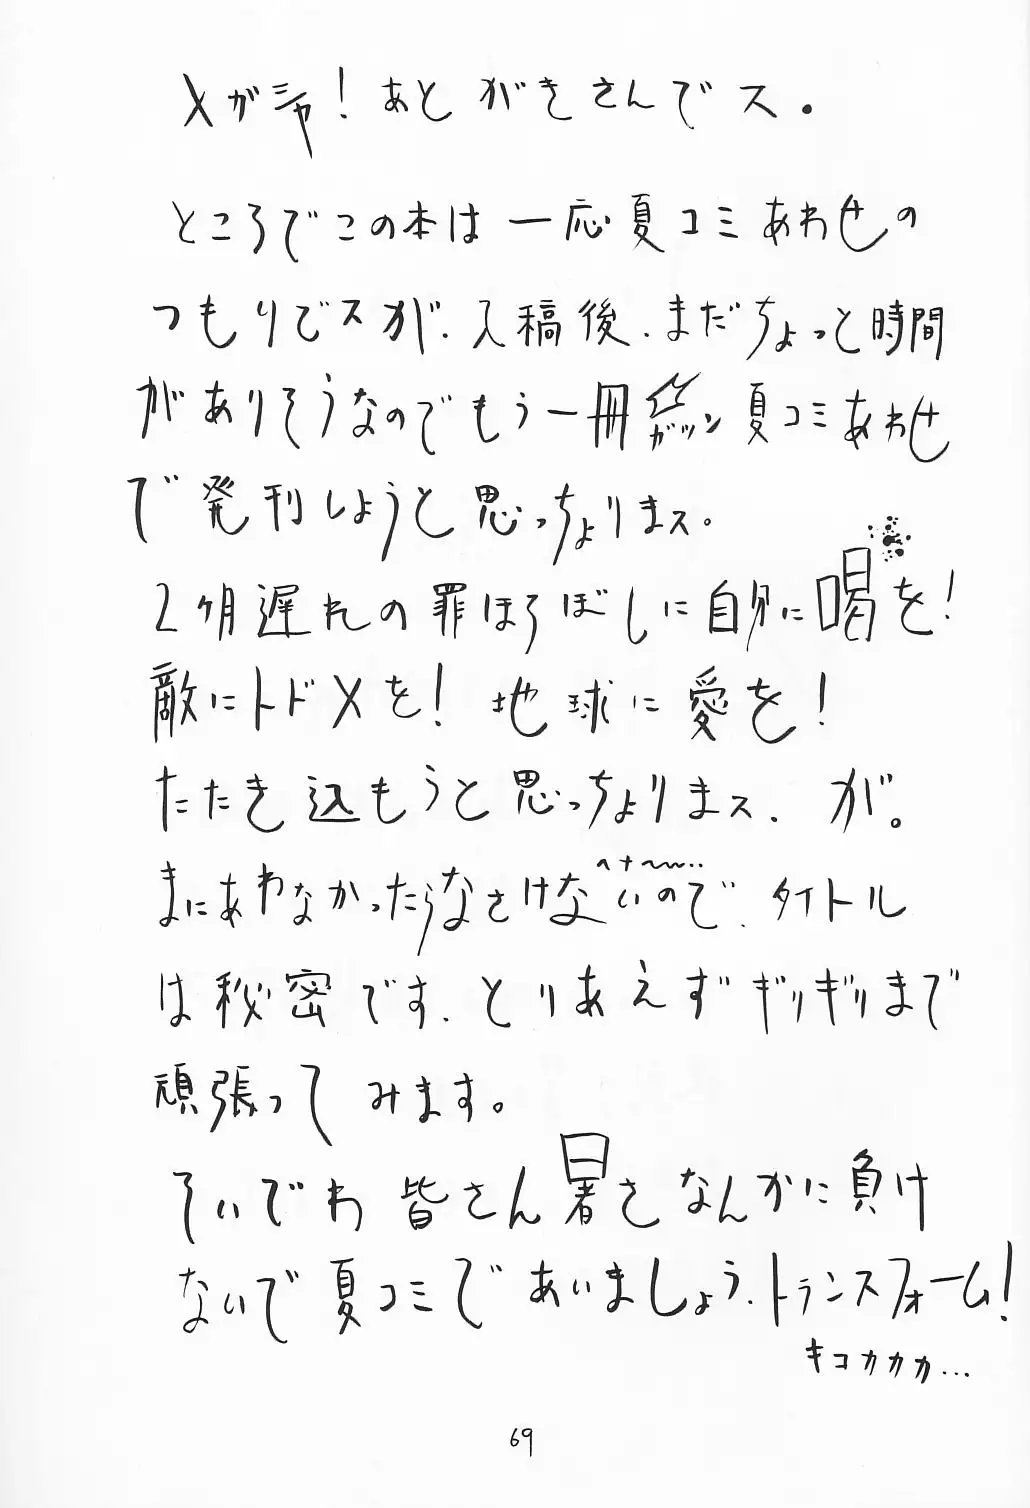 メガシャ！あとがきさんでス．
ところでこの本は一応夏コミあわせの
つもりでスが、入稿後、まだちょっと時間
がありそうなのでもう一冊ガツン夏コミあわせ
で発刊しようと思っちょりまス。
2ヶ月遅れの罪ほろぼしに自分に喝を！
敵にトドメを！地球に愛を！
たたき込もうと思っちょりまス、が。
へナ〜〜‥
まにあわなかったらなさけないので、タイトル
は秘密です、とりあえずギリギリまで
頑張ってみます。
そいでわ皆さん暑さなんかに負け
ないで夏コミであいましょう、トランスフォーム！
キコカカカ…
69